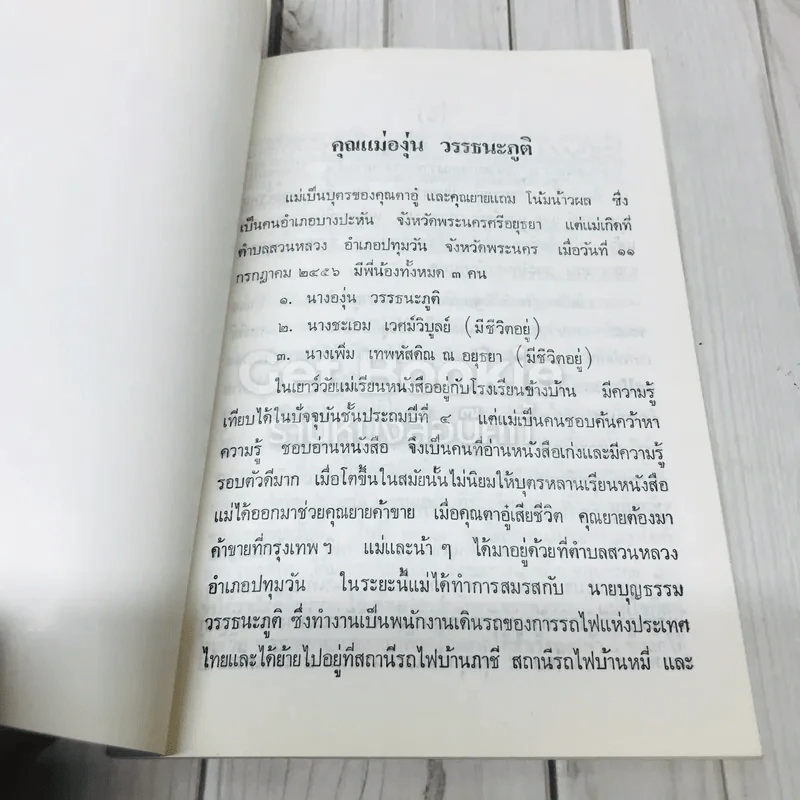 คุณแม่องุ่น วรรธนะภูติ
แม่เป็นบุตรของคุณตาอู๋ และคุณยายแถม โน้มน้าวผล ซึ่ง
เป็นคนอำเภอบางปะหัน จังหวัดพระนครศรีอยุธยา แต่แม่เกิดที่
ตำบลสวนหลวง อำเภอปทุมวัน จังหวัดพระนคร เมื่อวันที่ ๑๑
กรกฎาคม ๒๔๕๖ มีพี่น้องทั้งหมด ๓ คน
๑. นางองุ่น วรรธนะภูติ
๒. นางชะเอม เวศม์วิบูลย์ (มีชีวิตอยู่)
๓. นางเพิ่ม เทพหัสดิณ ณ อยุธยา (มีชีวิตอยู่)
Get Bookie
ในเยาว์วัยแม่เรียนหนังสืออยู่กับโรงเรียนข้างบ้าน มีความรู้
เทียบได้ในปัจจุบันชั้นประถมปีที่ ๔ แต่แม่เป็นคนชอบค้นคว้าหา
ความรู้ ชอบอ่านหนังสือ จึงเป็นคนที่อ่านหนังสือเก่งและมีความรู้
รอบตัวดีมาก เมื่อโตขึ้นในสมัยนั้นไม่นิยมให้บุตรหลานเรียนหนังสือ
แม่ได้ออกมาช่วยคุณยายค้าขาย เมื่อคุณตาอู๋เสียชีวิต คุณยายต้องมา
ค้าขายที่กรุงเทพฯ แม่และน้า ๆ ได้มาอยู่ด้วยที่ตำบลสวนหลวง
อำเภอปทุมวัน ในระยะนี้แม่ได้ทำการสมรสกับ นายบุญธรรม
วรรธนะภูติ ซึ่งทำงานเป็นพนักงานเดินรถของการรถไฟแห่งประเทศ
ไทยและได้ย้ายไปอยู่ที่สถานีรถไฟบ้านภาชี สถานีรถไฟบ้านหมี่ และ